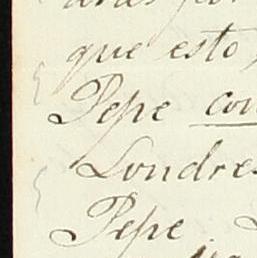 que esto,
Pepe con
Londres
Pepe